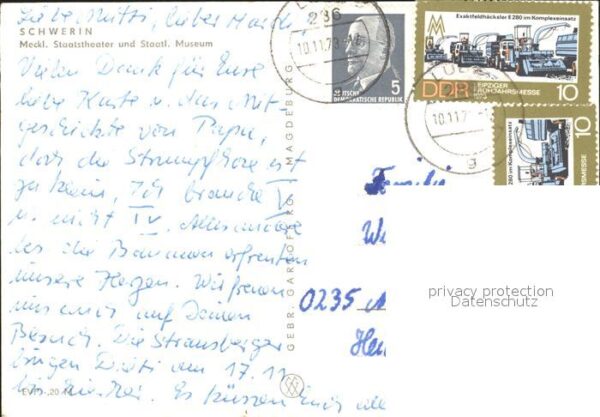 Liebe Mutti, lieber Hardi,
SCHWERIN
Meckl. Staatstheater und Staatl. Museum
Vielen Dank für Eure
liebe Karte u. das Mit-
geschickte von Papa,
doch die Strumpfhose ist
zu klein. Ich brauche V
u. nicht IV. Alles andere
bis die Bananen erfreuten
unsere Herzen. Wir freuen
uns auf Deinen
Besuch. Die Strausberger
bringen Dich am 17.11.
Es küssen Euch alle
EV 0,20
GEBR. GARLOFF KG, MAGDEBURG
236
10.11.73
5
DEUTSCHE
DEMOKRATISCHE REPUBLIK
Exaktfeldhäcksler E 280 im Komplexeinsatz
DDR
LEIPZIGER
FRÜHJAHRSMESSE
1973
10
10.11.7
g
E 280 im Komplexeinsatz
RSMESSE
10
Familie
We
0235
privacy protection
Datenschutz